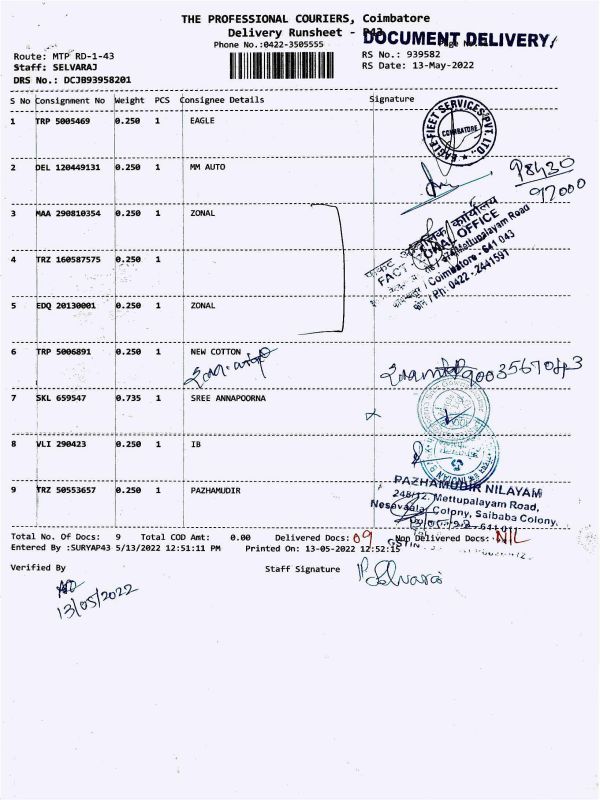 THE PROFESSIONAL COURIERS, Coimbatore
Delivery Runsheet - P43
DOCUMENT DELIVERY
Phone No.:0422-3505555
Route: MTP RD-1-43
RS No.: 939582
Staff: SELVARAJ
RS Date: 13-May-2022
DRS No.: DCJB93958201
S No Consignment No Weight PCS Consignee Details Signature
1 TRP 5005469 0.250 1 EAGLE
EAGLE FLEET SERVICES PVT. LTD.
COIMBATORE
2 DEL 120449131 0.250 1 MM AUTO
98430
97000
3 MAA 290810354 0.250 1 ZONAL
FACT - ZONAL OFFICE
Mettupalayam Road
Coimbatore - 641 043
Ph: 0422-2441591
4 TRZ 160587575 0.250 1
5 EDQ 20130001 0.250 1 ZONAL
6 TRP 5006891 0.250 1 NEW COTTON
9003567043
7 SKL 659547 0.735 1 SREE ANNAPOORNA
8 VLI 290423 0.250 1 IB
9 TRZ 50553657 0.250 1 PAZHAMUDIR
PAZHAMUDIR NILAYAM
248/12, Mettupalayam Road,
Nesavaalar Colony, Saibaba Colony,
Total No. Of Docs: 9 Total COD Amt: 0.00 Delivered Docs: 09 Non Delivered Docs: NIL
Entered By :SURYAP43 5/13/2022 12:51:11 PM Printed On: 13-05-2022 12:52:15
Verified By Staff Signature P. Selvaraj
13/05/2022